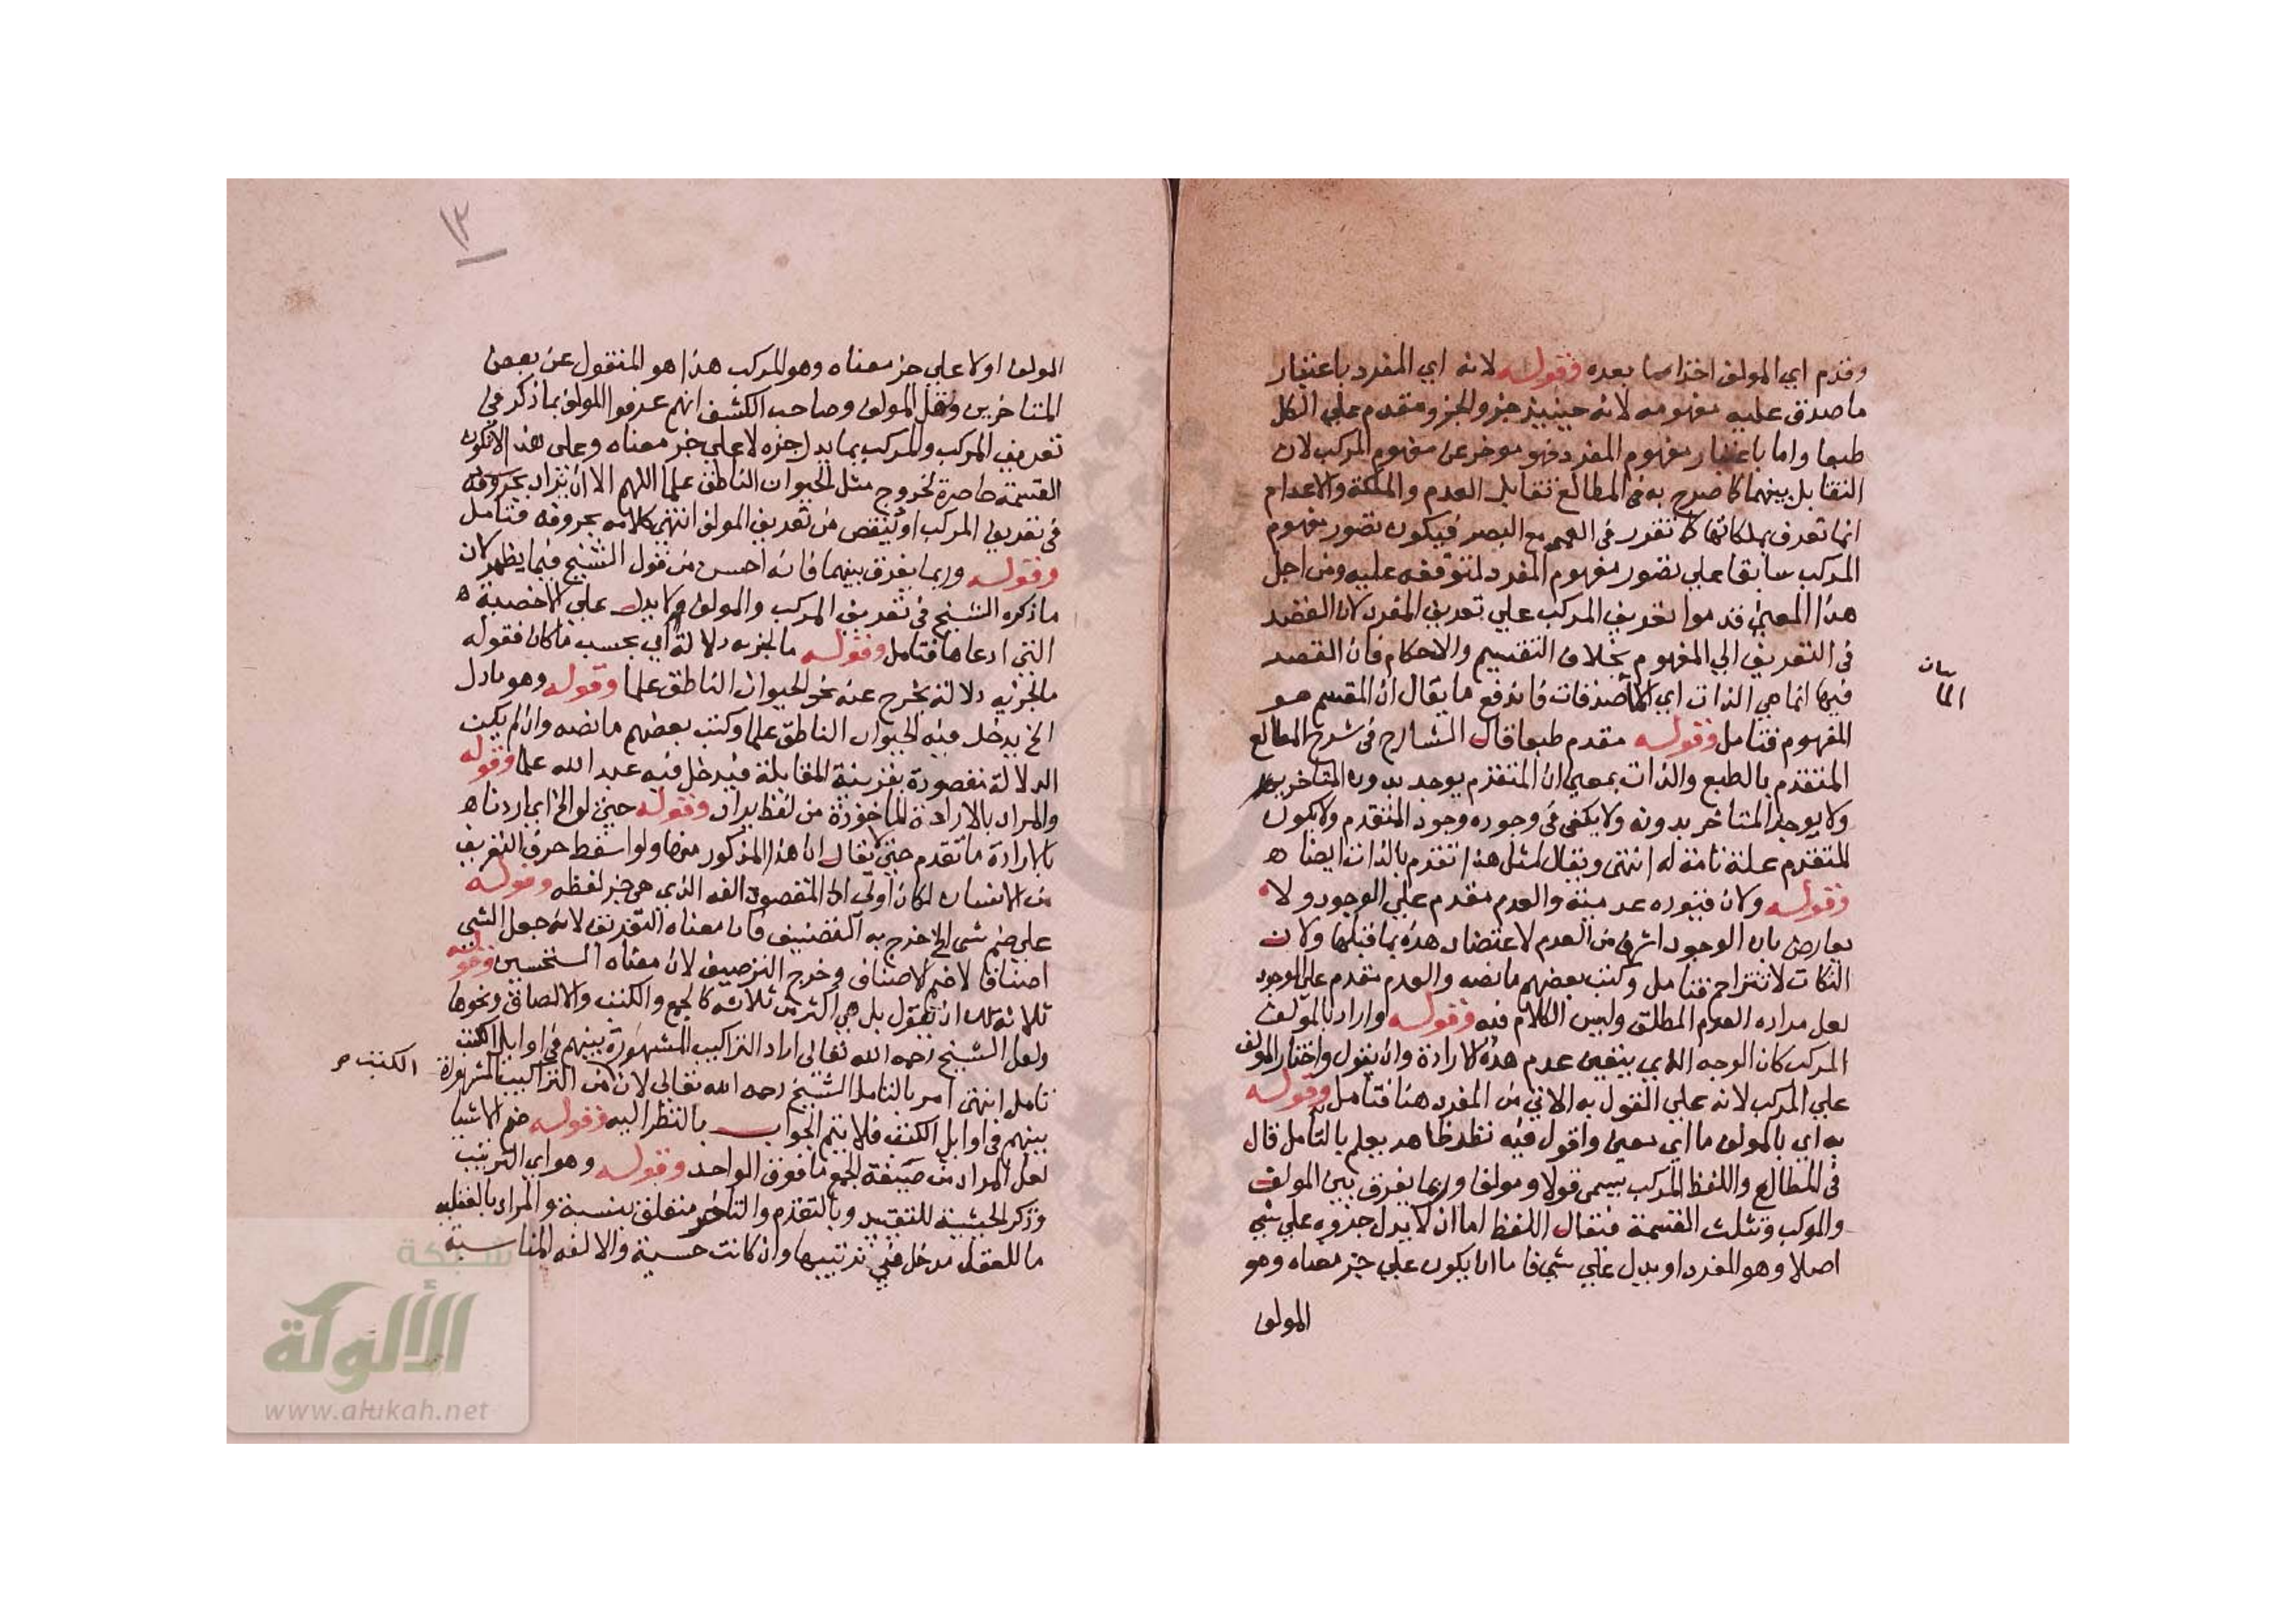 وقدم اي المولف اخذا مما بعده وقوله لانه اي المفرد باعتبار
ما صدق عليه مفهومه لانه حينيذ جزو الجزو مقدم علي الكل
طبعا واما باعتبار مفهوم المفرد فهو موخر عن مفهوم المركب لان
التقابل بينهما كما صرح به في المطالع تقابل العدم والملكة والاعدام
انما تعرف بملكاتها كما تقرر في العمي مع البصر فيكون تصور مفهوم
المركب سابقا علي تصور مفهوم المفرد لتوقفه عليه ومن اجل
هذا المعني قدموا تعريف المركب علي تعريف المفرد لان القصد
في التعريف الي المفهوم بخلاف التقسيم والاحكام فان القصد
فيها انما هي الذات اي الماصدقات فاندفع ما يقال ان المقسم هو
المفهوم فتامل وقوله مقدم طبعا قال الشارح في شرح المطالع
المتقدم بالطبع والذات بمعني ان المتقدم يوجد بدون المتاخر
ولا يوجد المتاخر بدونه ولا يكفي في وجوده وجود المتقدم ولا يكون
المتقدم علة تامة له انتهي ويقال لمثل هذا تقدم بالذات ايضا ه
وقوله ولان قيوده عدمية والعدم مقدم علي الوجود ولا
يعارض بان الوجود اشرف من العدم لاعتضاد هذه بما قبلها ولان
النكات لا تتزاحم فتامل وكتب بعضهم ما نصه والعدم مقدم علي الوجود
لعل مراده العدم المطلق وليس الكلام فيه وقوله واراد بالمولف
المركب كان الوجه الذي يتعين عدم هذه الارادة وان يقول واختار المولف
علي المركب لانه علي القول به الاتي من المفرد هنا فتامل وقوله
به اي بالمولف ما اي معني واقول فيه نظر ظاهر يعلم بالتامل قال
في المطالع واللفظ المركب يسمي قولا ومولفا وربما يفرق بين المولف
والمركب وتثلث القسمة فيقال اللفظ اما ان لا يدل جزوه علي شي
اصلا وهو المفرد او يدل علي شي فاما ان يكون علي جز معناه وهو
المولف
المولف اولا علي جز معناه وهو المركب هذا هو المنقول عن بعض
المتاخرين ونقل المولف وصاحب الكشف انهم عرفوا المولف بما ذكر في
تعريف المركب والمركب بما يدل جزه لا علي جز معناه وعلي هذا لا تكون
القسمة حاصرة لخروج مثل الحيوان الناطق علما اللهم الا ان يزاد بحروفه
في تعريف المركب او ينقص من تعريف المولف انتهي كلامه بحروفه فتامل
وقوله وربما يفرق بينهما فانه احسن من قول الشيخ فيما يظهر لان
ما ذكره الشيخ في تعريف المركب والمولف ولا يدل علي الاخصية ه
التي ادعاها فتامل وقوله ما لجزيه دلالة اي بحسب ما كان فقوله
ما لجزيه دلالة يخرج عنه نحو الحيوان الناطق علما وقوله وهو ما دل
الخ يدخل فيه الحيوان الناطق علما وكتب بعضهم ما نصه وان لم يكن
الدلالة مقصودة بقرينة المقابلة فيدخل فيه عبد الله علما وقوله
والمراد بالارادة الماخوذة من لفظ يراد وقوله حيث لوالخ اي اردنا ه
بالارادة ما تقدم حتي لا يقال ان هذا المذكور منها ولو اسقط حرف التعريف
من الانسان لكان اولي اذ المقصود الفه الذي هي جز لفظه وقوله
علي ضم شي الخ خرج به التصنيف فان معناه التفريق لانه جعل الشي
اصنافا لا ضم الاصناف وخرج الترصيف لان معناه التحسين وقوله
ثلاثة لك ان تقول بل هي اكثر من ثلاثة كالجمع والكتب والالصاق ونحوها
ولعل الشيخ رحمه الله تعالي اراد التراكيب المشهورة بينهم في اوايل الكتب
تامل انتهي امر بالتامل الشيخ رحمه الله تعالي لان من التراكيب المشهورة الكتب صح
بينهم في اوايل الكتب فلا يتم الجواب بالنظر اليه وقوله ضم الاشيا
لعل المراد من صيغة الجمع ما فوق الواحد وقوله وهو اي الترتيب
وذكر الحيثية للتقييد وبالتقدم والتاخر متعلق بنسبة والمراد بالعقلية
ما للعقل مدخل في ترتيبها وان كانت حسية والالفه المناسبة
١٣
شبكة
الألوكة
www.alukah.net